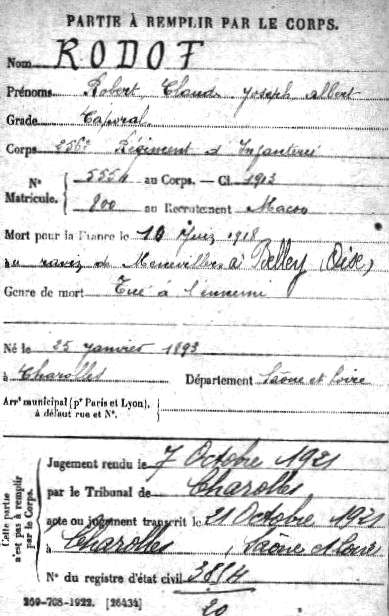 PARTIE À REMPLIR PAR LE CORPS.
Nom RODOT
Prénoms Robert Claude Joseph Albert
Grade Caporal
Corps 256e Régiment d'Infanterie
N° Matricule. 5554 au Corps. — Cl. 1913
800 au Recrutement Macon
Mort pour la France le 10 Juin 1918
au ravin de Meneviller à Belloy (Oise)
Genre de mort Tué à l'ennemi
Né le 25 Janvier 1893
à Charolles Département Saône et Loire
Arrt municipal (pr Paris et Lyon), à défaut rue et N°.
Cette partie n'est pas à remplir par le Corps.
Jugement rendu le 7 Octobre 1921
par le Tribunal de Charolles
acte ou jugement transcrit le 21 Octobre 1921
à Charolles, Saône et Loire
N° du registre d'état civil 3854
20
269-708-1922. [26434]